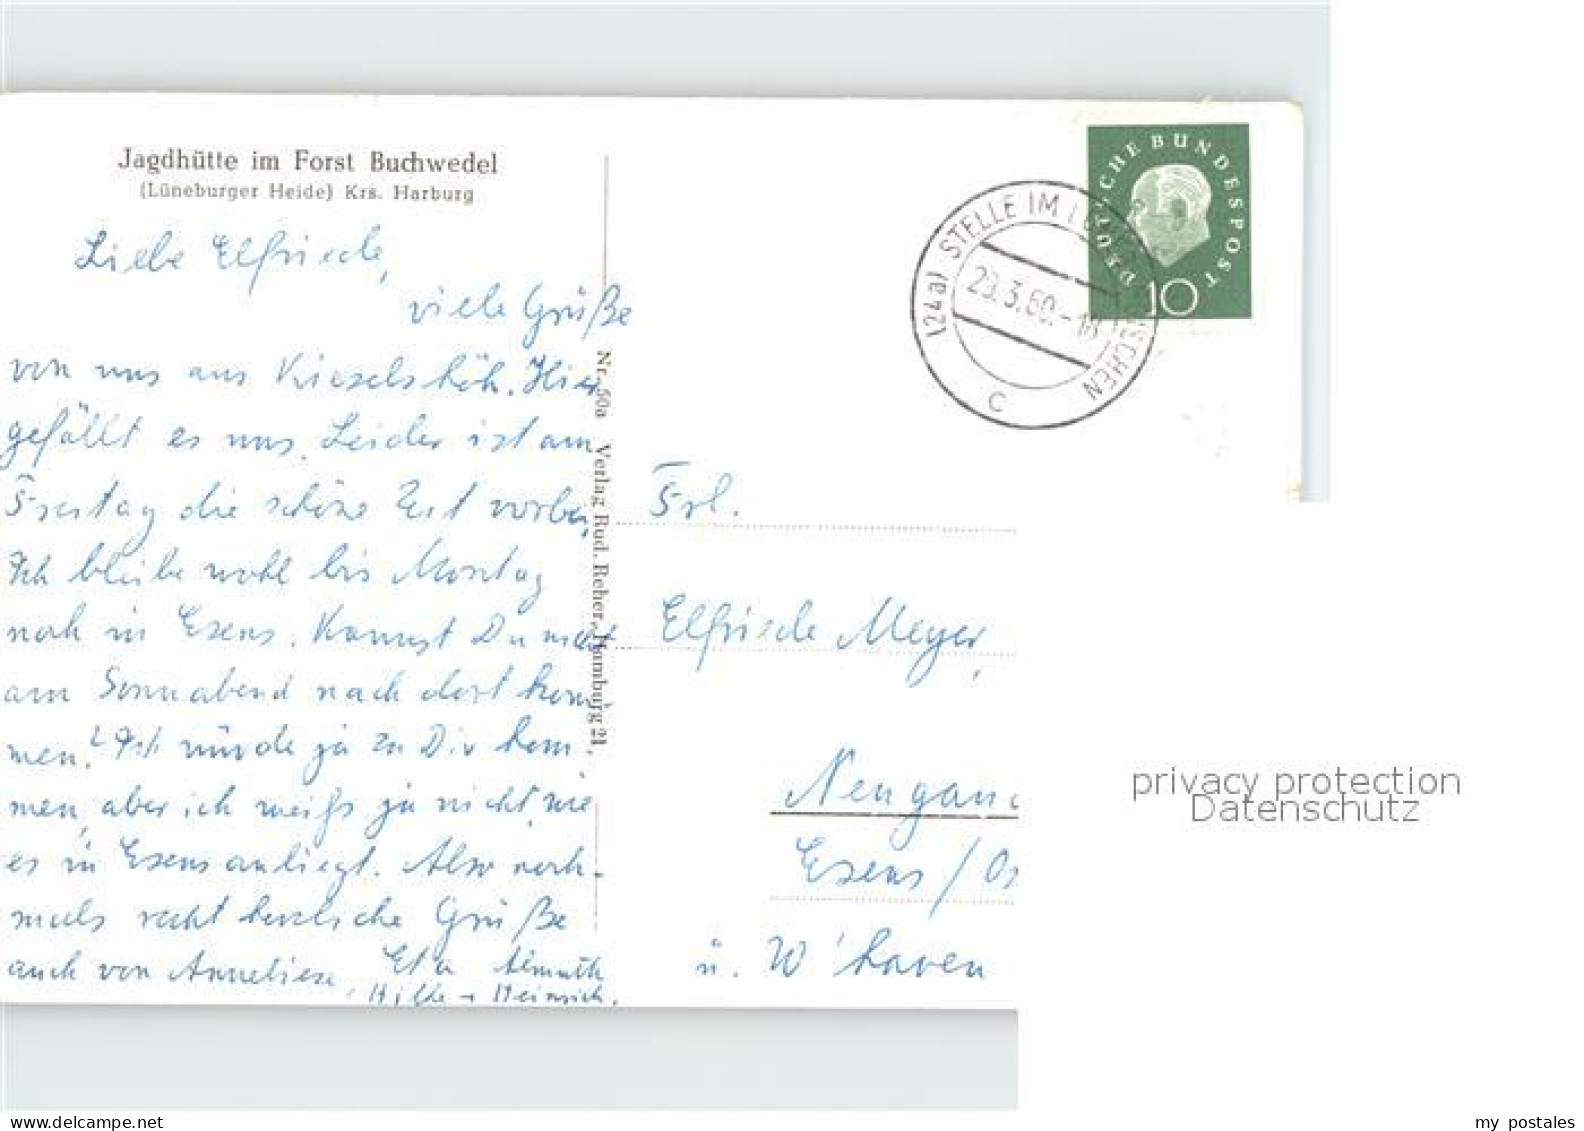 Jagdhütte im Forst Buchwedel
(Lüneburger Heide) Krs. Harburg
Liebe Elfriede,
viele Grüße
von uns aus Kieselshöh. Hier
gefällt es uns. Leider ist am
Freitag die schöne Zeit vorbei,
Ich bleibe wohl bis Montag
noch in Esens. Kannst Du
am Sonnabend nach dort kom-
men? Ich würde ja zu Dir kom-
men, aber ich weiß ja nicht, wie
es in Esens anliegt. Also noch-
mals recht herzliche Grüße
auch von Anneliese, Eta Almuth
Hilke + Heinrich.
Nr. 50a Verlag Rud. Reher, Hamburg 21.
DEUTSCHE BUNDESPOST
10
(24a) STELLE IM
.3.60.-18
C
Frl.
Elfriede Meyer,
Esens / Os
u. W'haven
privacy protection
Datenschutz
delcampe.net
my postales